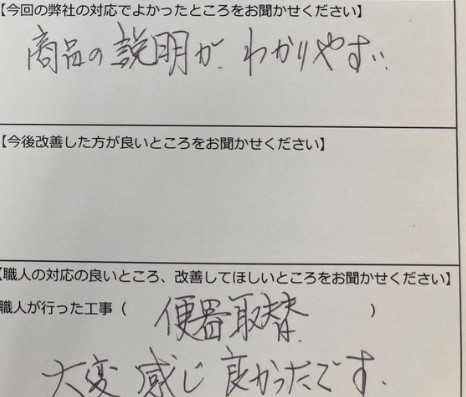 【今回の弊社の対応でよかったところをお聞かせください】
商品の説明が わかりやすい.
【今後改善した方が良いところをお聞かせください】
【職人の対応の良いところ、改善してほしいところをお聞かせください】
職人が行った工事（ 便器取替 ）
は.
大変 感じ 良かったです.